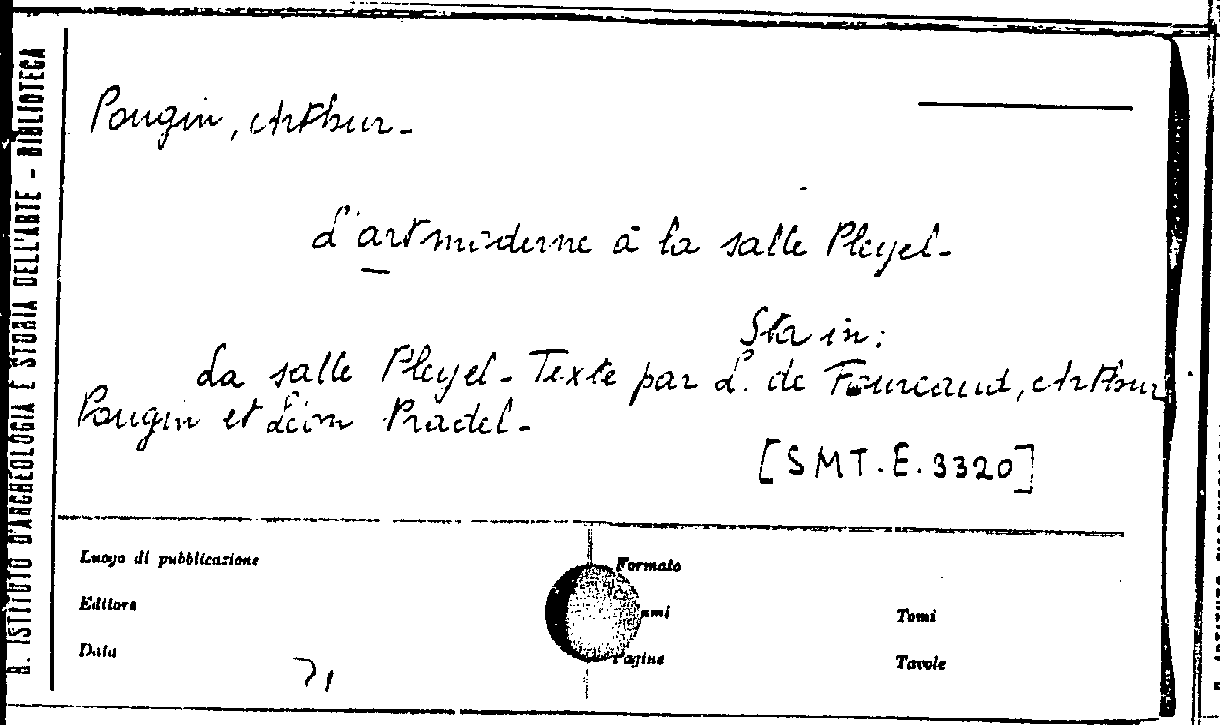 R. ISTITUTO D'ARCHEOLOGIA E STORIA DELL'ARTE - BIBLIOTECA
Pougin, Arthur -
L'art moderne à la salle Pleyel -
Sta in:
La salle Pleyel - Texte par L. de Fourcaud, Arthur
Pougin et Léon Pradel -
[SMT. E. 3320]
Luogo di pubblicazione
Formato
Editore
Tomi
Data
Pagine
Tavole
71